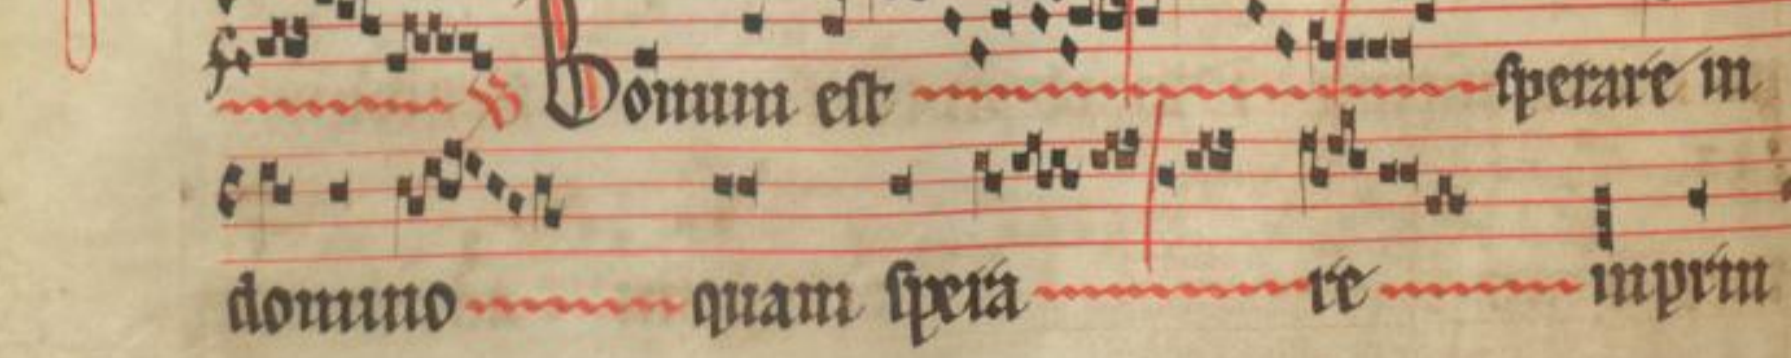 V Bonum est sperare in
domino quam spera re in prin